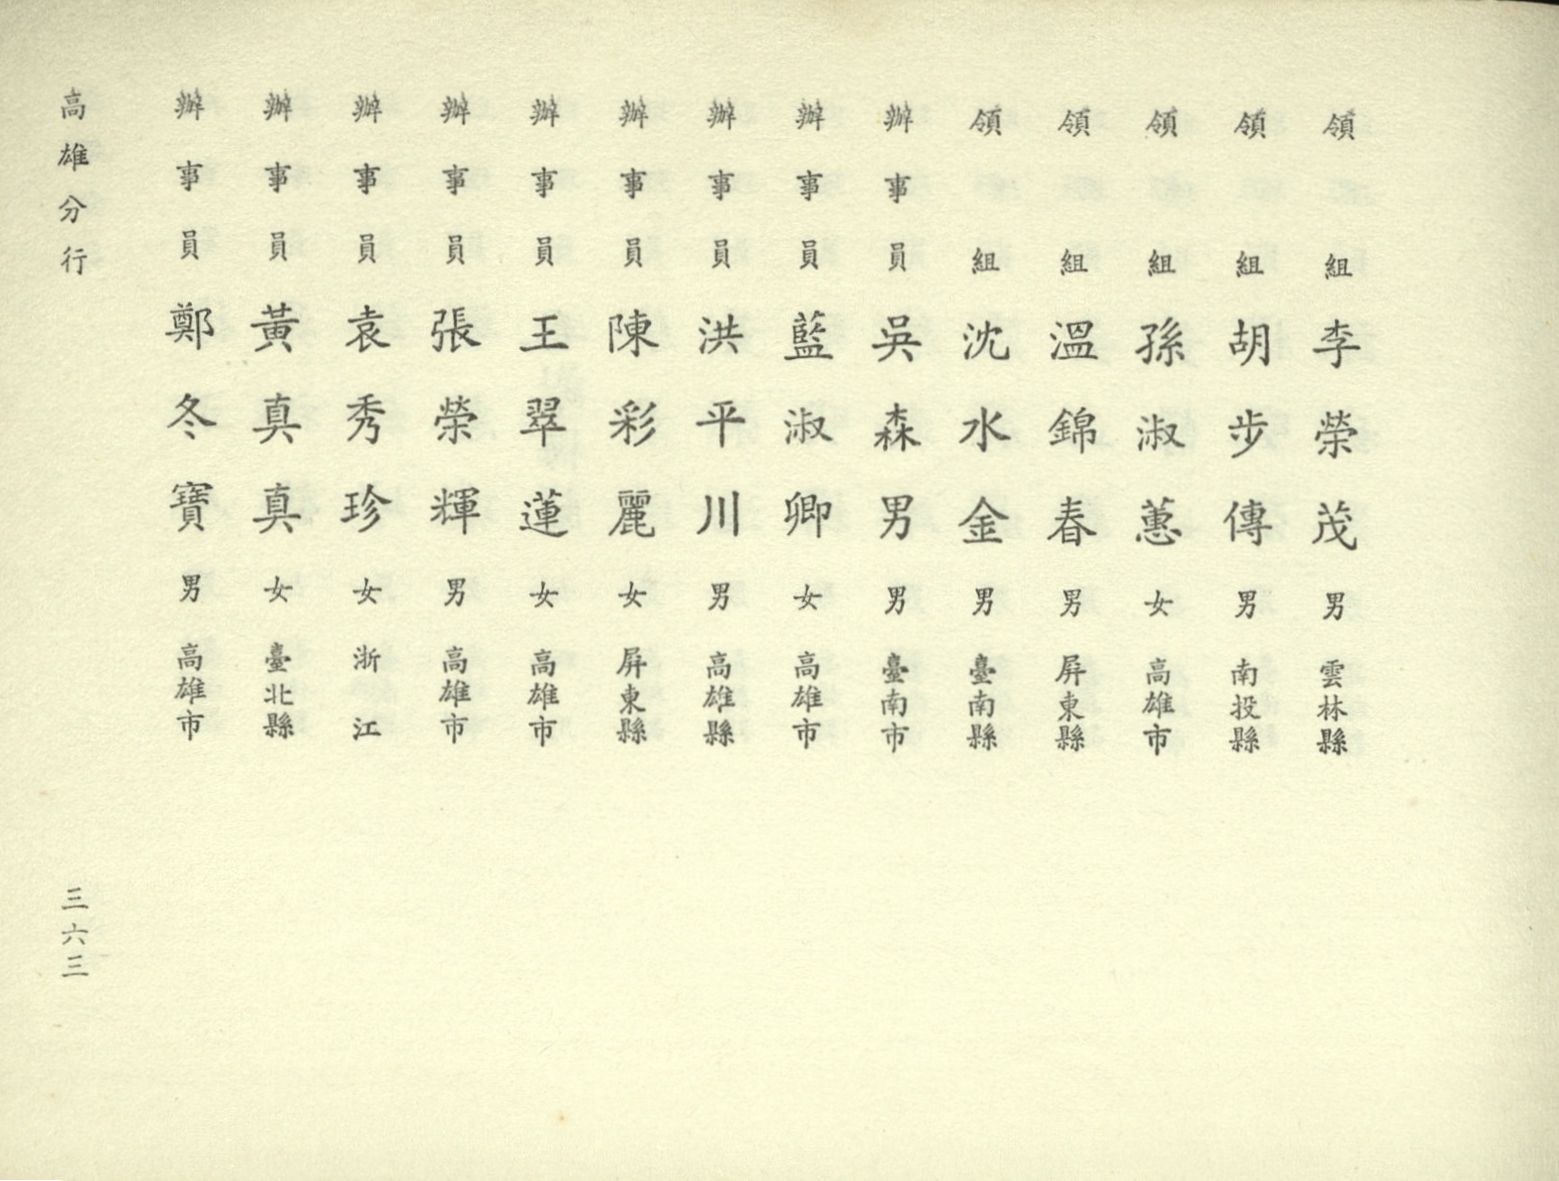 領組李榮茂男雲林縣
領組胡步傳男南投縣
領組孫淑蕙女高雄市
領組溫錦春男屏東縣
領組沈水金男臺南縣
辦事員吳森男男臺南市
辦事員藍淑卿女高雄市
辦事員洪平川男高雄縣
辦事員陳彩麗女屏東縣
辦事員王翠蓮女高雄市
辦事員張榮輝男高雄市
辦事員袁秀珍女浙江
辦事員黃真真女臺北縣
辦事員鄭冬寶男高雄市
高雄分行
三六三